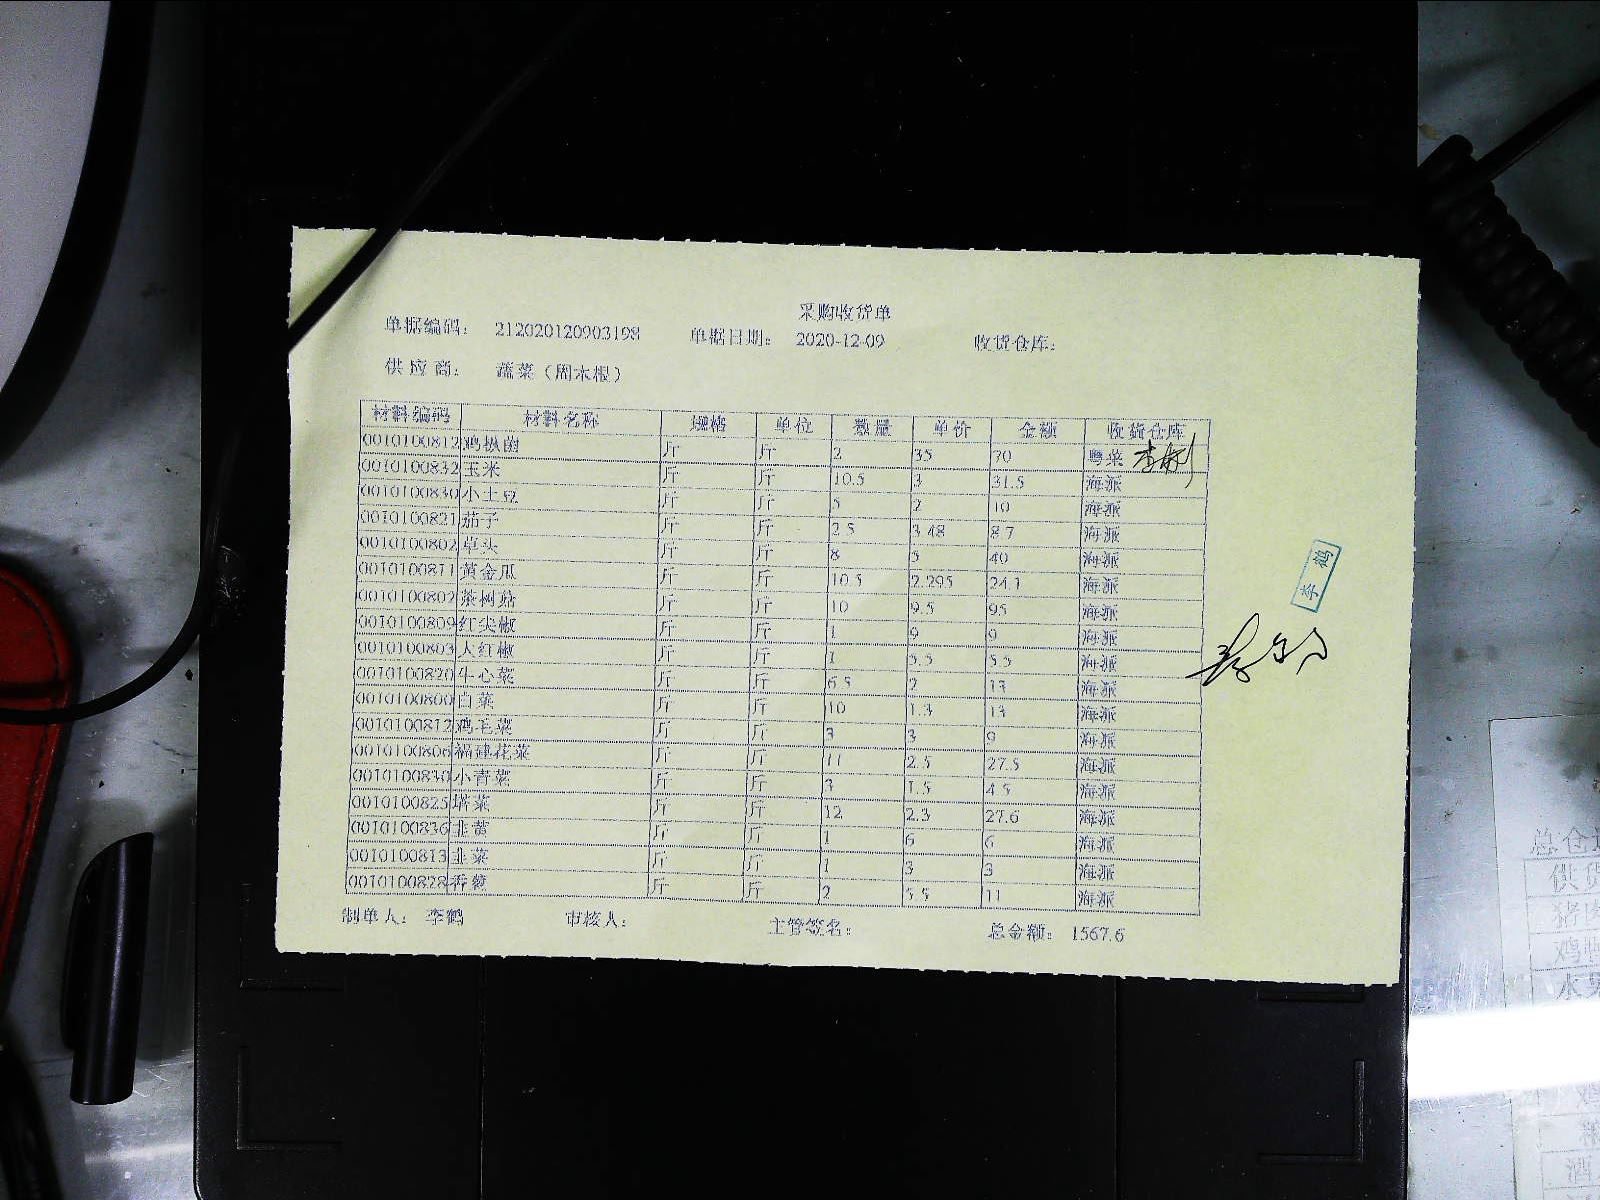 采购收货单
单据编码： 212020120903198 单据日期： 2020-12-09 收货仓库：
供应商： 蔬菜（周木根）
材料编码 材料名称 规格 单位 数量 单价 金额 收货仓库
0010100812 鸡枞菌 斤 斤 2 35 70 粤菜
0010100832 玉米 斤 斤 10.5 3 31.5 海派
0010100830 小土豆 斤 斤 5 2 10 海派
0010100821 茄子 斤 斤 2.5 3.48 8.7 海派
0010100802 草头 斤 斤 8 5 40 海派
0010100811 黄金瓜 斤 斤 10.5 2.295 24.1 海派
0010100802 茶树菇 斤 斤 10 9.5 95 海派
0010100809 红尖椒 斤 斤 1 9 9 海派
0010100803 大红椒 斤 斤 1 5.5 5.5 海派
0010100820 牛心菜 斤 斤 6.5 2 13 海派
0010100800 白菜 斤 斤 10 1.3 13 海派
0010100812 鸡毛菜 斤 斤 3 3 9 海派
0010100806 福建花菜 斤 斤 11 2.5 27.5 海派
0010100830 小青菜 斤 斤 3 1.5 4.5 海派
0010100825 塔菜 斤 斤 12 2.3 27.6 海派
0010100836 韭黄 斤 斤 1 6 6 海派
0010100813 韭菜 斤 斤 1 3 3 海派
0010100828 香葱 斤 斤 2 5.5 11 海派
制单人： 李鹤 审核人： 主管签名： 总金额： 1567.6
李鹤
总仓
供货